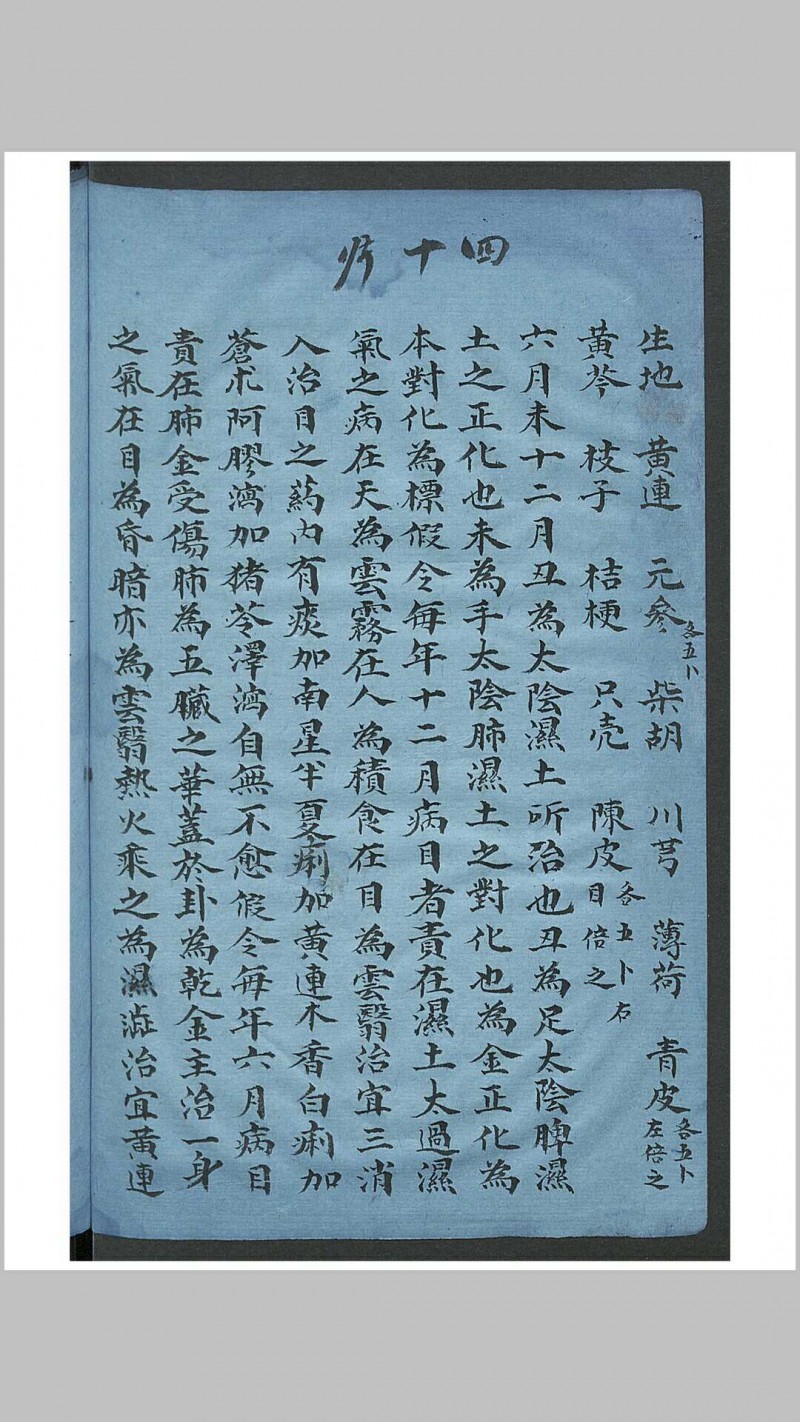 四十
生地 黃連 元參各五卜 柴胡 川芎 薄荷 青皮各五卜左倍之
黃芩 枝子 桔梗 只壳 陳皮各五卜右目倍之
六月未十二月丑為太陰濕土所治也丑為足太陰脾濕
土之正化也未為手太陰肺濕土之對化也為金正化為
本對化為標假令每年十二月病目者責在濕土太過濕
氣之病在天為雲霧在人為積食在目為雲翳治宜三消
入治目之藥內有痰加南星半夏痢加黃連木香白痢加
蒼朮阿膠瀉加猪苓澤瀉自無不愈假令每年六月病目
責在肺金受傷肺為五臟之華蓋於卦為乾金主治一身
之氣在目為昏暗亦為雲翳熱火乘之為濕澁治宜黃連